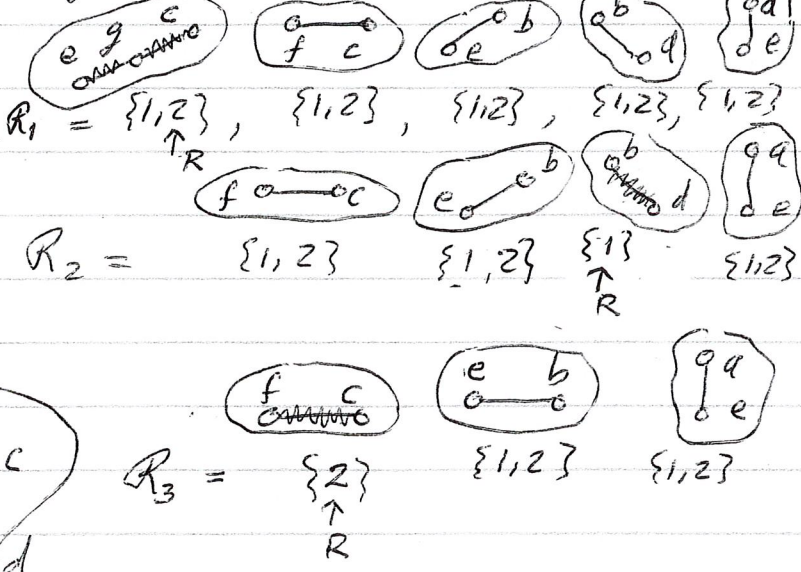 e g c f c e b b d a e
R₁ = {1,2}, {1,2}, {1,2}, {1,2}, {1,2}
↑R
f c e b b d a e
R₂ = {1,2} {1,2} {1} {1,2}
↑
R
f c e b a e
c R₃ = {2} {1,2} {1,2}
↑
R
d